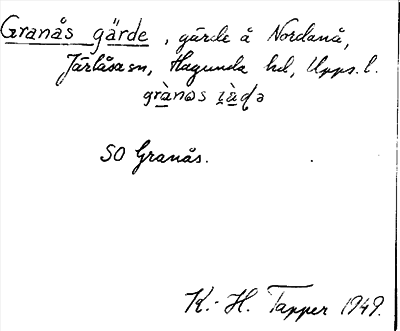 Granås gärde, gärde å Nordanå,
Järlåsa sn, Hagunda hd, Upps. l.
SO Granås.
K.-H. Tapper 1949.